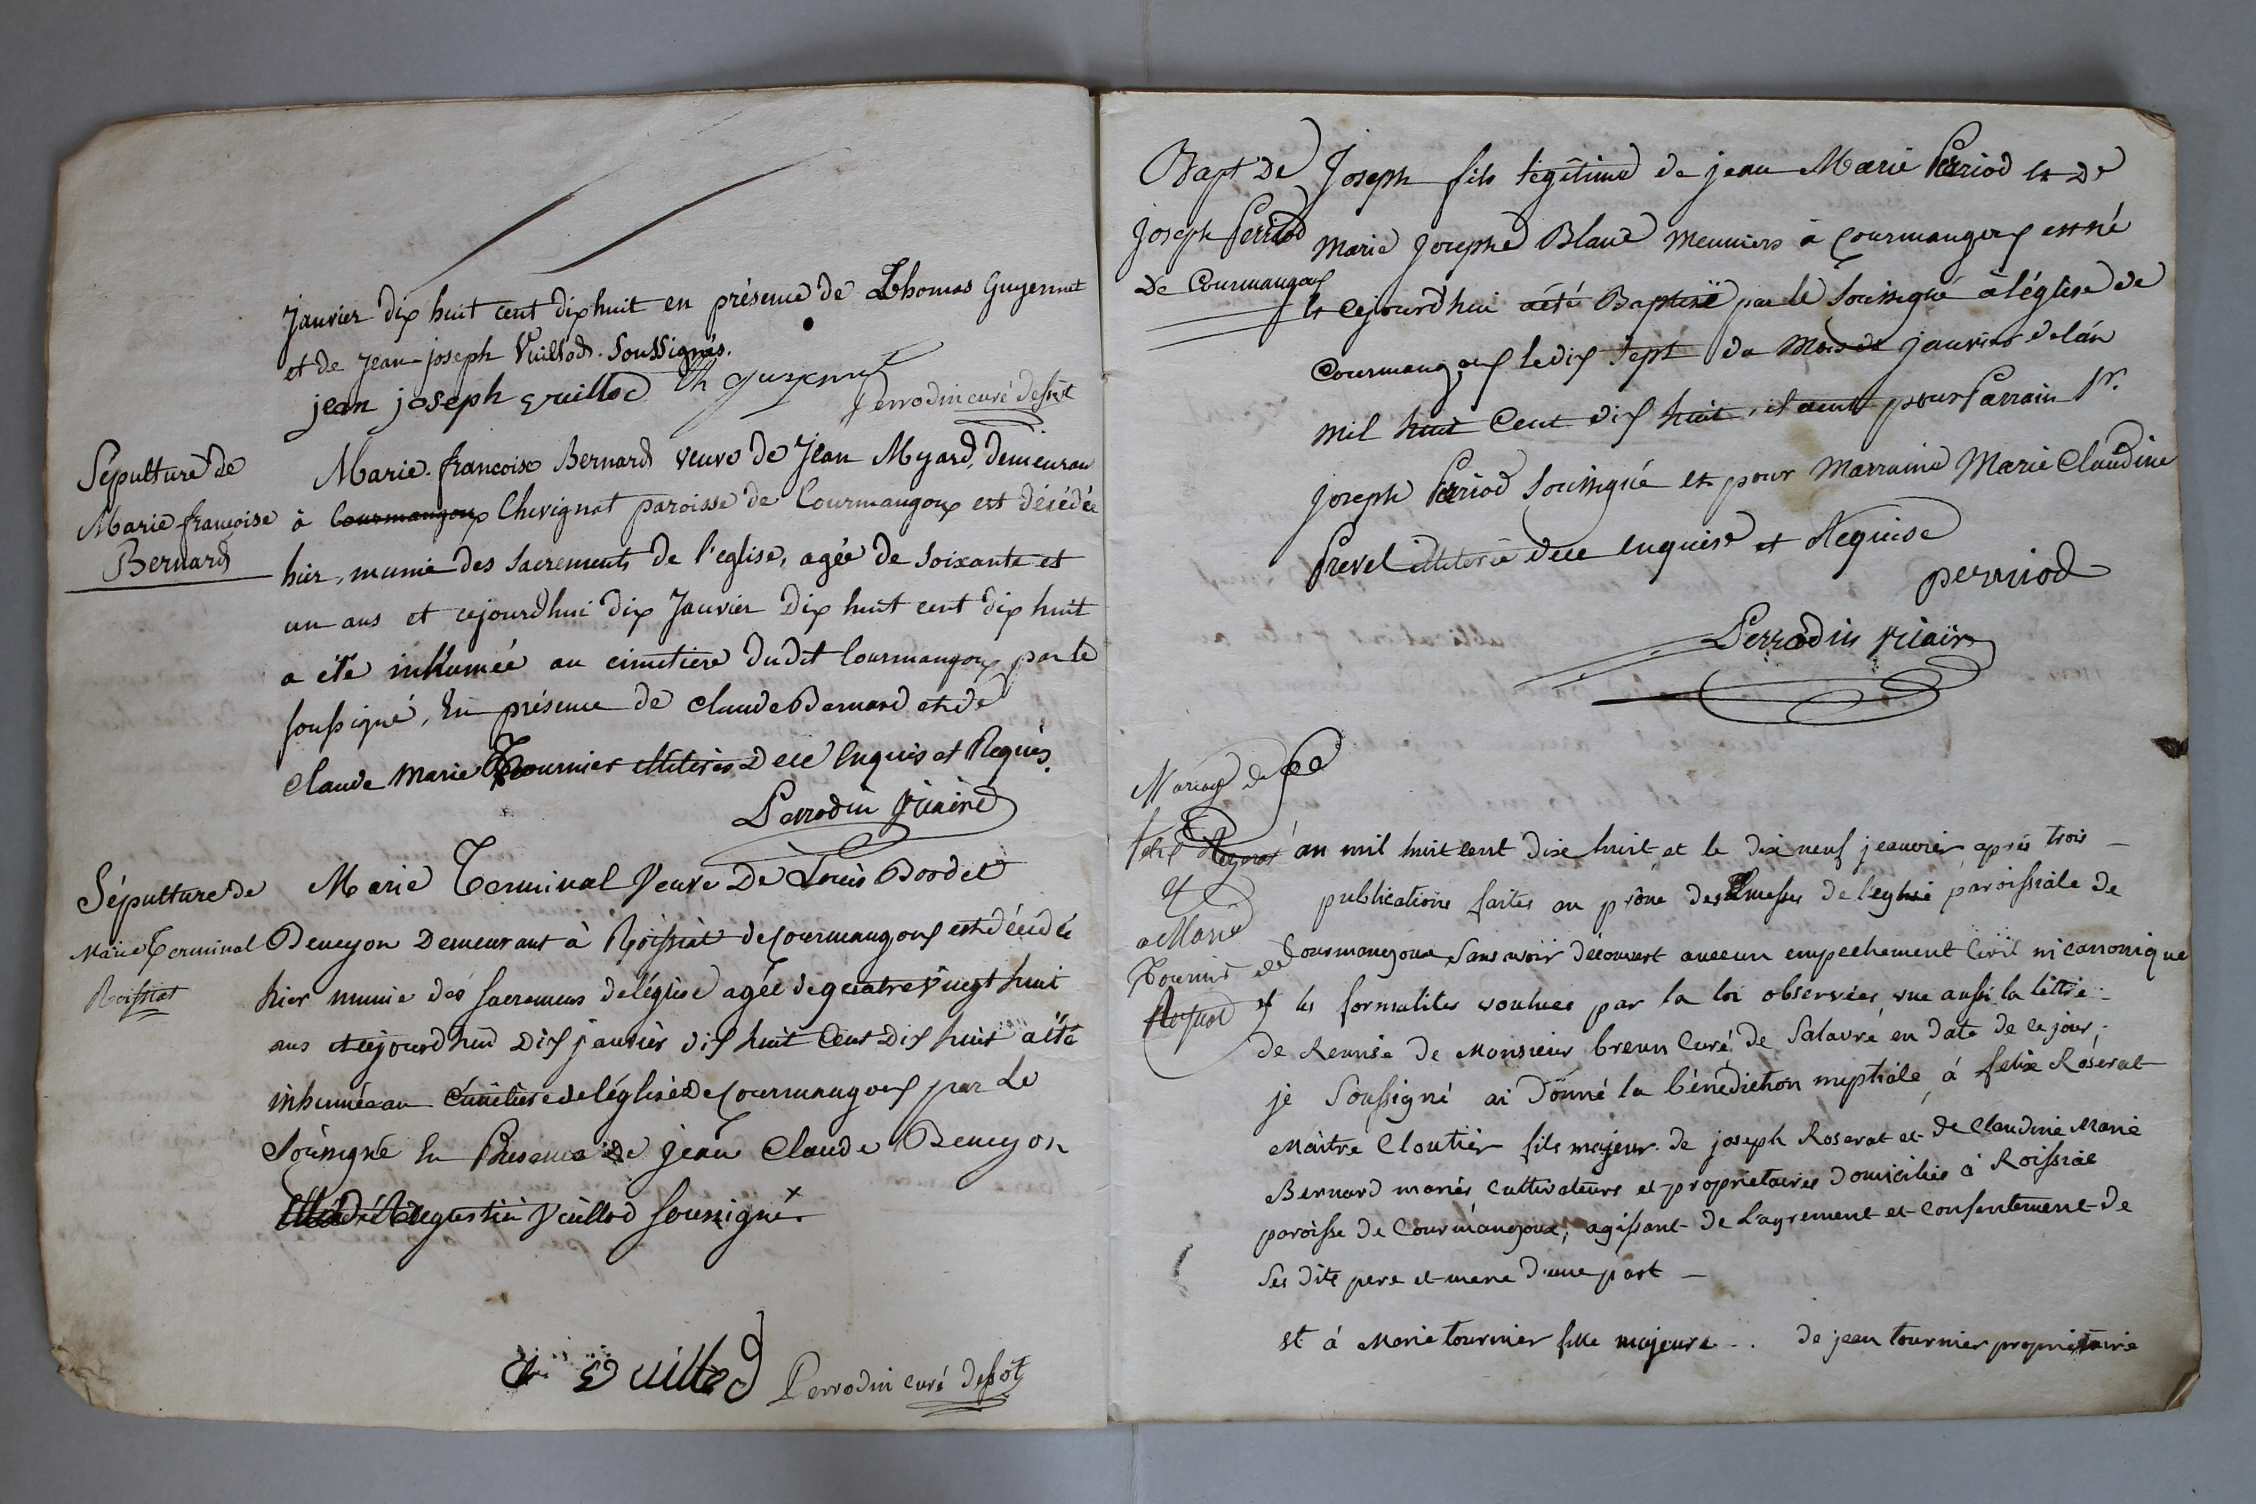 Janvier dix huit cent dixhuit en présence de Thomas Guyennet
et de Jean-joseph Vuillod. Soussignés.
jean joseph vuillod Th guyennet
Perrodin curé dessert
Sépulture de
Marie françoise
Bernard
Marie-francoise Bernard veuve de Jean Myard, demeuran
à Courmangoux Chevignat paroisse de Courmangoux est décédée
hier, munie des sacrements de l'eglise, agée de soixante et
un ans et cejourdhui dix Janvier Dix huit cent dix huit
a été inhumée au cimetiere dudit Courmangoux par le
soussigné, En présence de claude Bernard et de
Claude Marie Tournier illiterés De ce Enquis et Requis.
Perrodin Vicaire
Sépulture de
Marie Terminal
Roissiat
Marie Terminal Veuve De Louis Bordet
Beneyon Demeurant à Roissiat de Courmangoux est décédée
hier munie des sacremens de léglise agée de quatre vingt huit
ans et cejourd'hui Dix janvier dix huit Cent Dix huit a été
inhumée au Cimetiere de léglise de Courmangoux par Le
Soussigné En Presence de jean Claude Beneyon
Augustin Vuillod soussigné. x
Vuillod Perrodin curé dessert
Bapt De
Joseph Perriod
De Courmangoux
Joseph fils légitime de jean Marie Perriod et De
Marie Josephe Blanc Meuniers à Courmangoux est né
et cejourd'hui a été Baptisé par le Soussigné à l'église de
Courmangoux le dix sept du Mois de janvier de l'an
mil huit Cent dix huit, il a eut pour Parrain Sr.
Joseph Perriod Soussigné et pour Marraine Marie Claudine
Prevel illiterée de ce enquise et Requise
perriod
Perrodin Vicaire
Mariage de
felix Rozerat
et
a Marie
Tournier de
Roissiat
an mil huit cent dix huit et le dix neuf jeanvier après trois
publications faites au prône des messes de l'eglise paroissiale de
Courmangoux, sans avoir découvert aucun empechement Civil ni canonique
et les formalités voulues par la loi observées vue aussi la lettre
de Remise de Monsieur breun Curé de Salavré en date de ce jour,
je soussigné ai Donné la bénédiction nuptiale à felix Roserat
Maitre Cloutier fils majeur de joseph Roserat et de Claudine Marie
Bernard mariés cultivateurs et proprietaires domiciliés à Roissiat
paroisse de Courmangoux, agissant de l'agrement et consentement de
ses dits pere et mere d'une part
et à Marie tournier fille majeure .. de jean tournier proprietaire